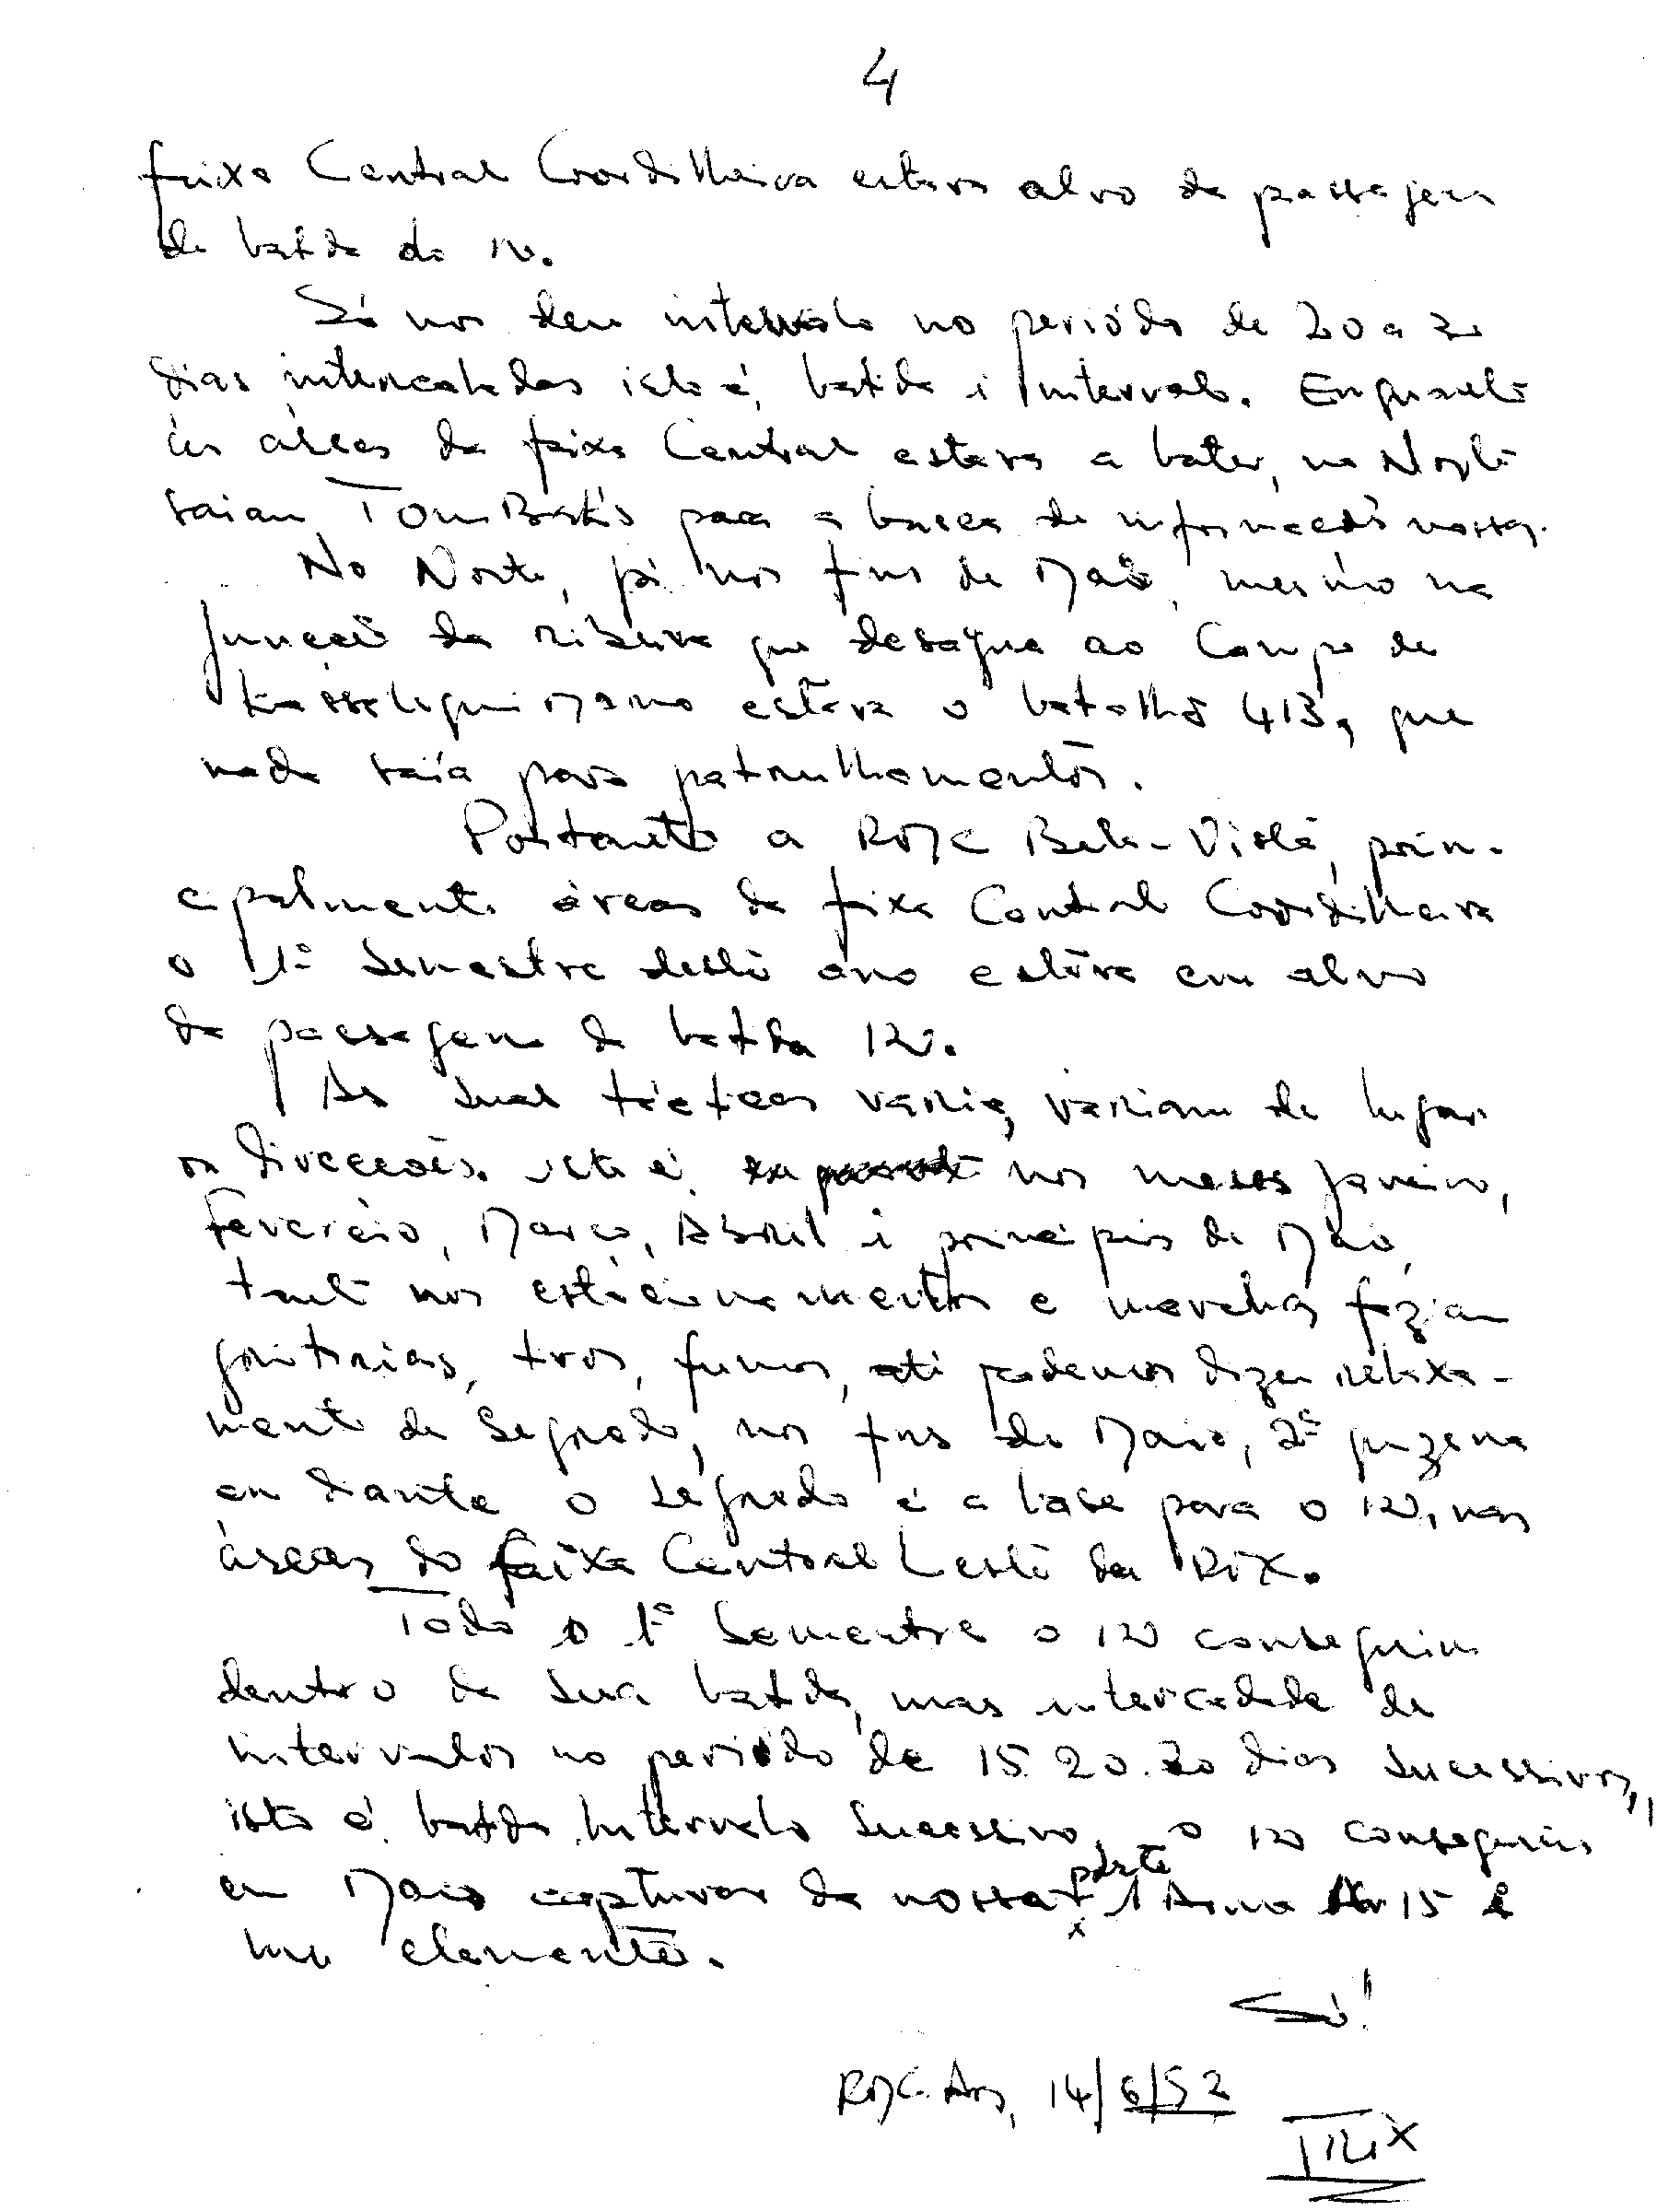 4
faixa Central Coordilheira estava alvo da passagem
de batida do IN.
Só nos deu intervalo no periódo de 20 a 30
dias intercaladas isto é, batida i intervalo. Enquanto
as áreas da faixa Central estava a bater, no Norte
saiam para a busca de informações nossas.
No Norte, já nos fins de Maio, mesmo na
junção da ribeira que desagua ao Campo de
estava o batalhão 413, que
nada saía para patrulhamentos.
Portanto a Bela-Vista, prin-
cipalmente áreas da faixa Central Coordilheira
o 1º Semestre deste ano estáva em alvo
da passagem da batida IN.
As suas tácticas varia, variam de lugar
ou direcções. isto é, nos meses Janeiro,
Fevereiro, Março, Abril i principios de Maio,
tanto nos estácionamentos e marchas faziam
gritarias, tiros, fumos, até podemos dizer relaxa-
mento de segredo, nos fins de Maio, 2ª quizena
em diante o segredo é a base para o IN, nas
áreas da faixa Central Leste da
Todo o 1º Semestre o IN conseguiu
dentro da sua batida, mas intercadada de
intervalos no periódo de 15. 20. 30 dias sucessivos,
isto é batida, Intervalo Sucessivo, o IN conseguiu
em Maio capturar da nossa parte 1 Arma 15 e
um elemento.
Só!
14/6/52